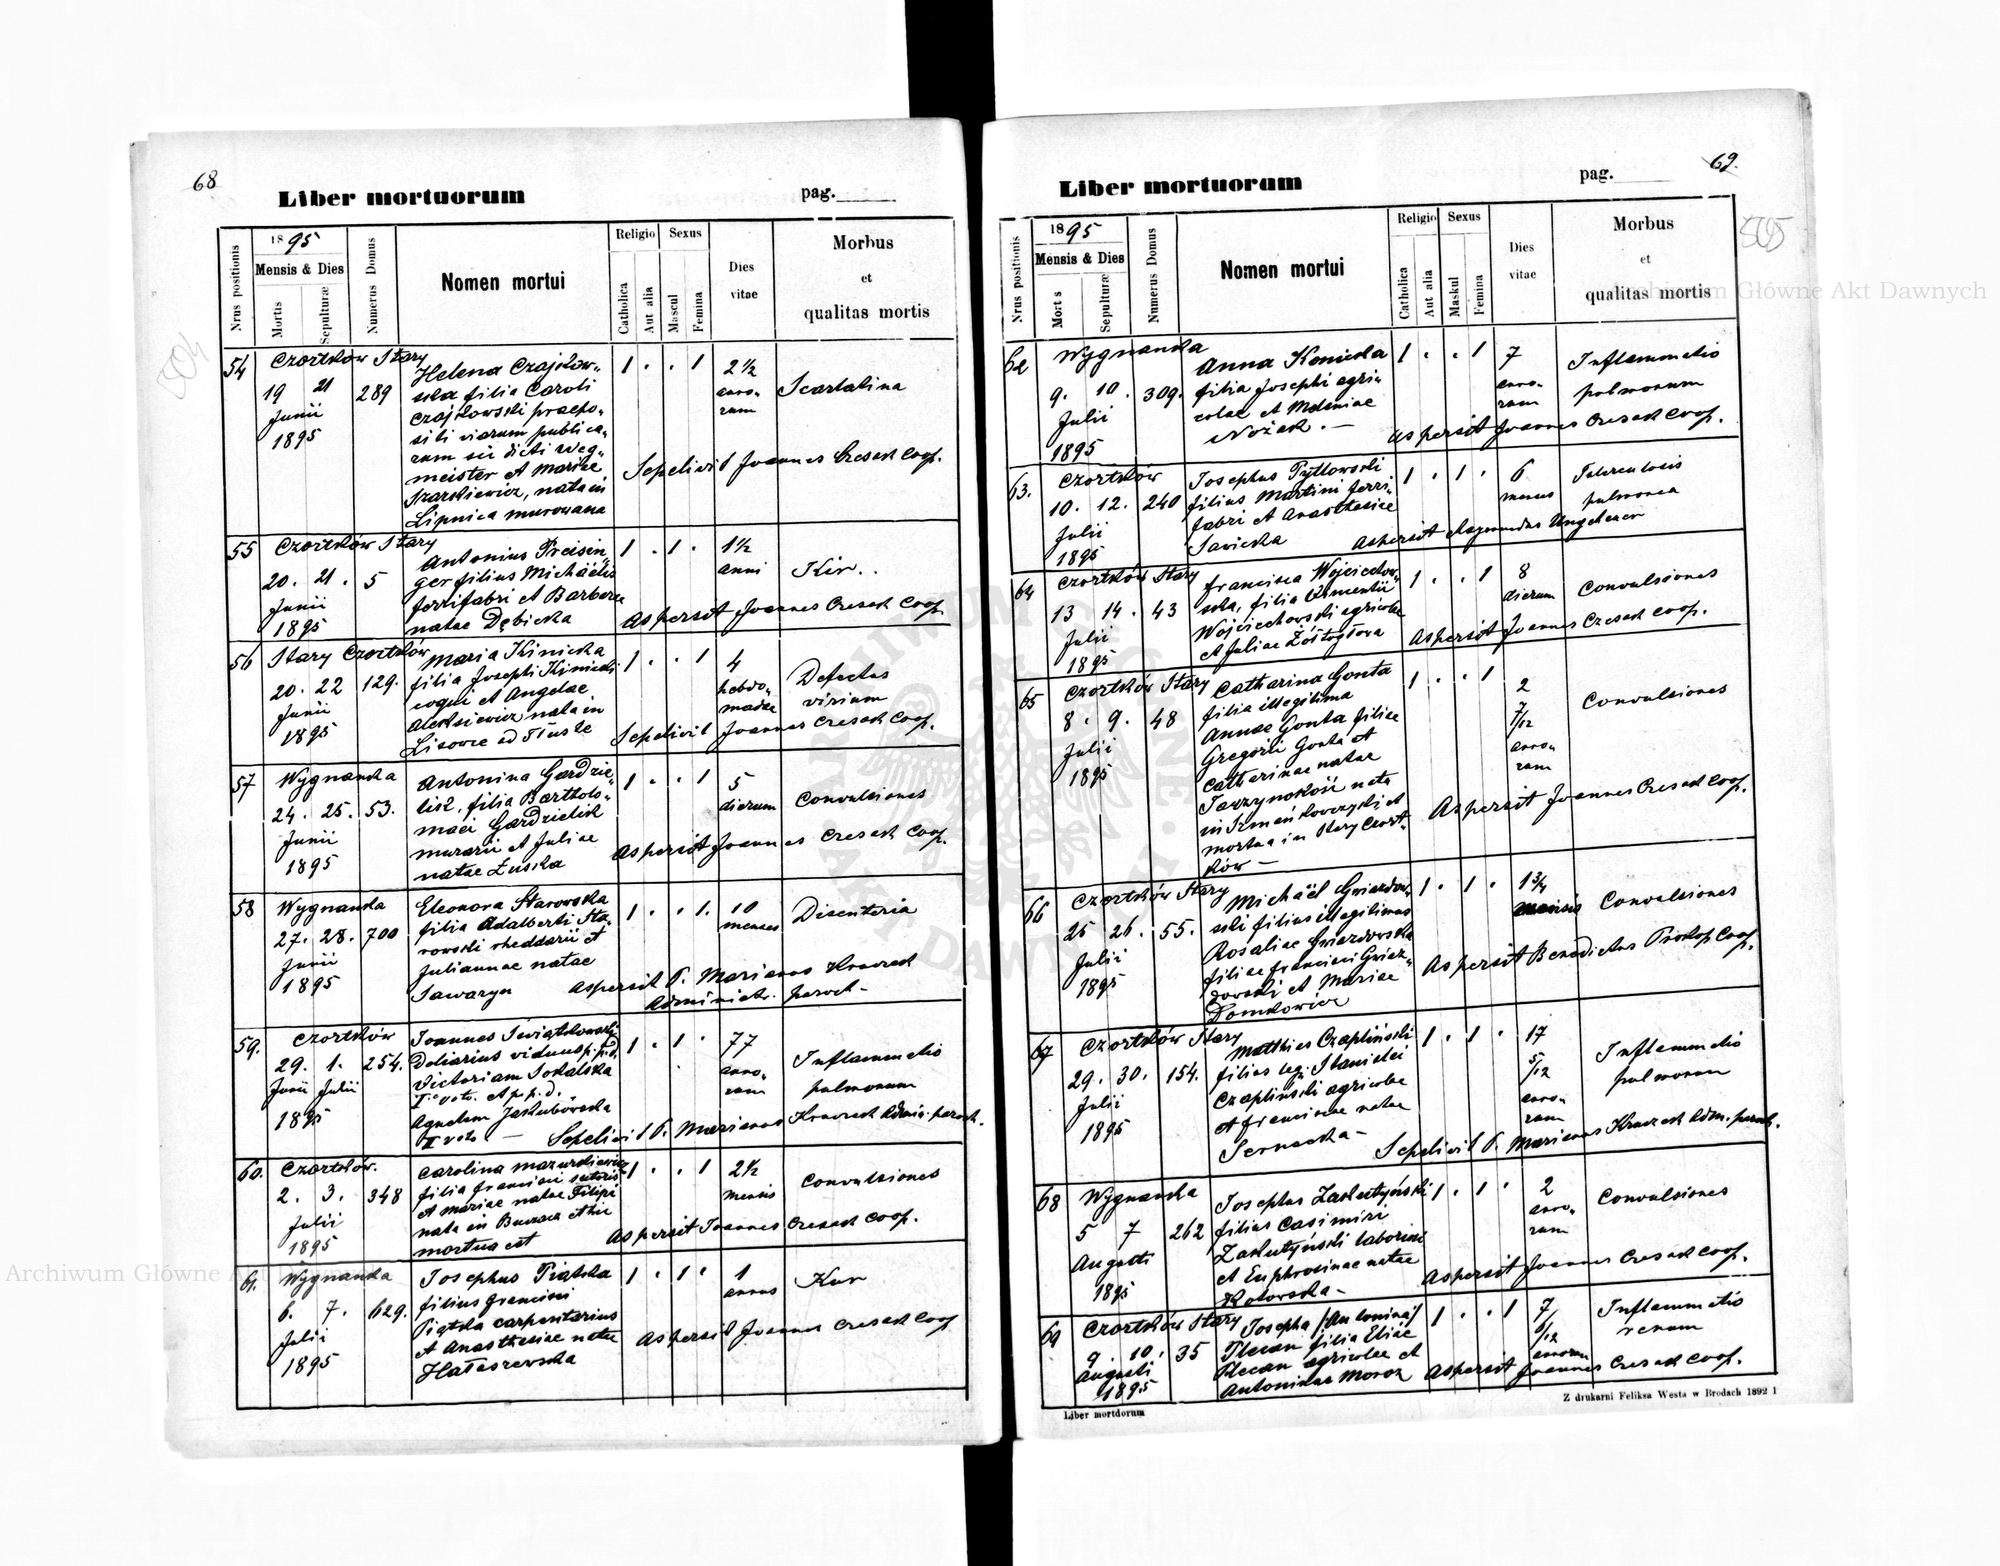 68
Liber mortuorum
pag.
Nrus positionis
1895
Mensis & Dies
Mortis
Sepulturæ
Numerus Domus
Nomen mortui
Religio
Catholica
Aut alia
Sexus
Mascul
Femina
Dies
vitae
Morbus
et
qualitas mortis
504
54 Czortków Stary
19 21 289
Junii
1895
Helena Czajkow-
ska filia Caroli
Czajkowski praepo-
siti viarum publica-
rum sic dicti Weg-
meister et Mariae
Szarkiewicz, nata in
Lipnica murowana
1 . . 1
2 1/2
anno-
rum
Scarlatina
Sepelivit Joannes Czesak Coop.
55 Czortków Stary
20. 21. 5
Junii
1895
Antonius Preisin-
ger filius Michäelis
ferrifabri et Barbarae
natae Dębicka
1 . 1 .
1 1/2
anni
Kir..
Aspersit Joannes Czesak Coop.
56 Stary Czortków
20. 22 129.
Junii
1895
Maria Kinicka
filia Josephi Kinicki
coqui et Angelae
Aleksiewicz nata in
Lisowce ad Tłuste
1 . . 1
4
hebdo-
madae
Defectus
virium
Sepelivit Joannes Czesak Coop.
57 Wygnanka
24. 25. 53.
Junii
1895
Antonina Gardzie-
lik, filia Bartholo-
maei Gardzielik
murarii et Juliae
natae Łuska
1 . . 1
5
dierum
Convulsiones
Aspersit Joannes Czesak Coop.
58 Wygnanka
27. 28. 700
Junii
1895
Eleonora Starowska
filia Adalberti Sta-
rowski rheddarii et
Juliannae natae
Sawaryn
1 . . 1.
10
menses
Disenteria
Aspersit P. Marianus Kraczek
Administr. paroch.
59. Czortków
29. 1. 254.
Junii Julii
1895
Joannes Swiątkowski
Doliarius viduus p.p.d.
Victoriam Sokalska
I voto. et p.p.d.
Agnetem Jakubowska
II voto
1 . 1 .
77
anno-
rum
Inflammatio
pulmonum
Sepelivit P. Marianus Kraczek Admin. paroch.
60. Czortków.
2. 3. 348
Julii
1895
Carolina Mazurkiewicz
filia Francisci sutoris
et Mariae natae Filipi
nata in Buczacz et hic
mortua est
1 . . 1
2 1/2
mensis
Convulsiones
Aspersit Joannes Czesak Coop.
61. Wygnanka
6. 7. 629.
Julii
1895
Josephus Piątka
filius Francisci
Piątka carpentarius
et Anasthasiae natae
Hałaszewska
1 . 1 .
1
annus
Kur
Aspersit Joannes Czesak Coop
69.
Liber mortuorum
pag.
Nrus positionis
1895
Mensis & Dies
Mortis
Sepulturæ
Numerus Domus
Nomen mortui
Religio
Catholica
Aut alia
Sexus
Maskul
Femina
Dies
vitae
Morbus
et
qualitas mortis
505
62 Wygnanka
9. 10. 309.
Julii
1895
Anna Konicka
filia Josephi agri-
colae et Melaniae
Nożak. —
1 . . 1
7
anno-
rum
Inflammatio
pulmonum
Aspersit Joannes Czesak Coop.
63. Czortków
10. 12. 240
Julii
1895
Josephus Pytlowski
filius Martini ferri-
fabri et Anasthasiae
Savicka
1 . 1 .
6
menses
Tuberculosis
pulmonea
Aspersit Raymundus Ungeheuer
64 Czortków Stary
13 14. 43
Julii
1895
Francisca Wojciechow-
ska, filia Clementii
Wojciechowski agricolae
et Juliae Zółtogłowa
1 . . 1
8
dierum
Convulsiones
Aspersit Joannes Czesak Coop.
65 Czortków Stary
8. 9. 48
Julii
1895
Catharina Gonta
filia illegitima
Annae Gonta filiae
Gregorii Gonta et
Catharinae natae
nata
mortua in Stary Czort-
ków —
1 . . 1
2
7/12
anno-
rum
Convulsiones
Aspersit Joannes Czesak Coop.
66 Czortków Stary
25 26. 55.
Julii
1895
Michäel Gwiazdow-
ski filius illegitimus
Rosaliae Gwiazdowska
filiae Francisci Gwiaz-
dowski et Mariae
Domkowicz
1 . 1 .
1 3/4
mensis
Convulsiones
Aspersit Benedictus Prokop Coop.
67 Czortków Stary
29. 30. 154.
Julii
1895
Matthias Czapliński
filius leg. Stanislai
Czapliński agricolae
et Franciscae natae
Sernecka —
1 . 1 .
17
5/12
anno-
rum
Inflammatio
pulmonum
Sepelivit P. Marianus Kraczek Adm. paroch.
68 Wygnanka
5 7 262
Augusti
1895
Josephus Zakutyński
filius Casimiri
Zakutyński laborini
et Euphrosinae natae
Kotowska —
1 . 1 .
2
anno-
rum
Convulsiones
Aspersit Joannes Czesak Coop.
69 Czortków Stary
9. 10. 35
Augusti
1895
Josepha /Antonina/
Plecan filia Eliae
Plecan agricolae et
Antoninae Moroz
1 . . 1
7
6/12
annorum
Inflammatio
renum
Aspersit Joannes Czesak Coop.
Liber mortdorum
Z drukarni Feliksa Westa w Brodach 1892 1
Archiwum Główne Akt Dawnych
Archiwum Główne Akt Dawnych
ARCHIWUM GŁÓWNE AKT DAWNYCH